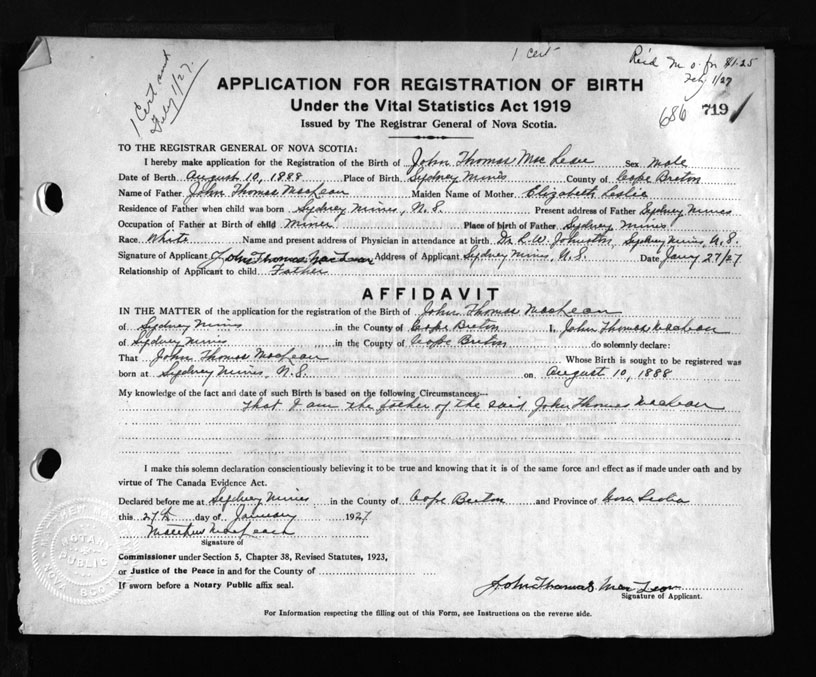 1 Cert and
Feby 1/27.
1 Cert
Rec'd M.O. for $1.25
Feby 1/27
686 719
APPLICATION FOR REGISTRATION OF BIRTH
Under the Vital Statistics Act 1919
Issued by The Registrar General of Nova Scotia.
TO THE REGISTRAR GENERAL OF NOVA SCOTIA:
I hereby make application for the Registration of the Birth of John Thomas MacLean Sex Male
Date of Birth August 10, 1888 Place of Birth Sydney Mines County of Cape Breton
Name of Father John Thomas MacLean Maiden Name of Mother Elizabeth Leslie
Residence of Father when child was born Sydney Mines, N.S. Present address of Father Sydney Mines
Occupation of Father at Birth of child Miner Place of birth of Father Sydney Mines
Race White Name and present address of Physician in attendance at birth Dr. L. W. Johnston, Sydney Mines, N.S.
Signature of Applicant John Thomas MacLean Address of Applicant Sydney Mines, N.S. Date Jany 27/27
Relationship of Applicant to child Father
AFFIDAVIT
IN THE MATTER of the application for the registration of the Birth of John Thomas MacLean
of Sydney Mines in the County of Cape Breton I, John Thomas MacLean
of Sydney Mines in the County of Cape Breton do solemnly declare:
That John Thomas MacLean Whose Birth is sought to be registered was
born at Sydney Mines, N.S. on August 10, 1888
My knowledge of the fact and date of such Birth is based on the following Circumstances:—
That I am the father of the said John Thomas MacLean
I make this solemn declaration conscientiously believing it to be true and knowing that it is of the same force and effect as if made under oath and by
virtue of The Canada Evidence Act.
Declared before me at Sydney Mines in the County of Cape Breton and Province of Nova Scotia
this 27th day of January 1927
Matthew MacLean
Signature of
Commissioner under Section 5, Chapter 38, Revised Statutes, 1923,
or Justice of the Peace in and for the County of
If sworn before a Notary Public affix seal.
John Thomas MacLean
Signature of Applicant.
For Information respecting the filling out of this Form, see Instructions on the reverse side.
NOTARY
PUBLIC